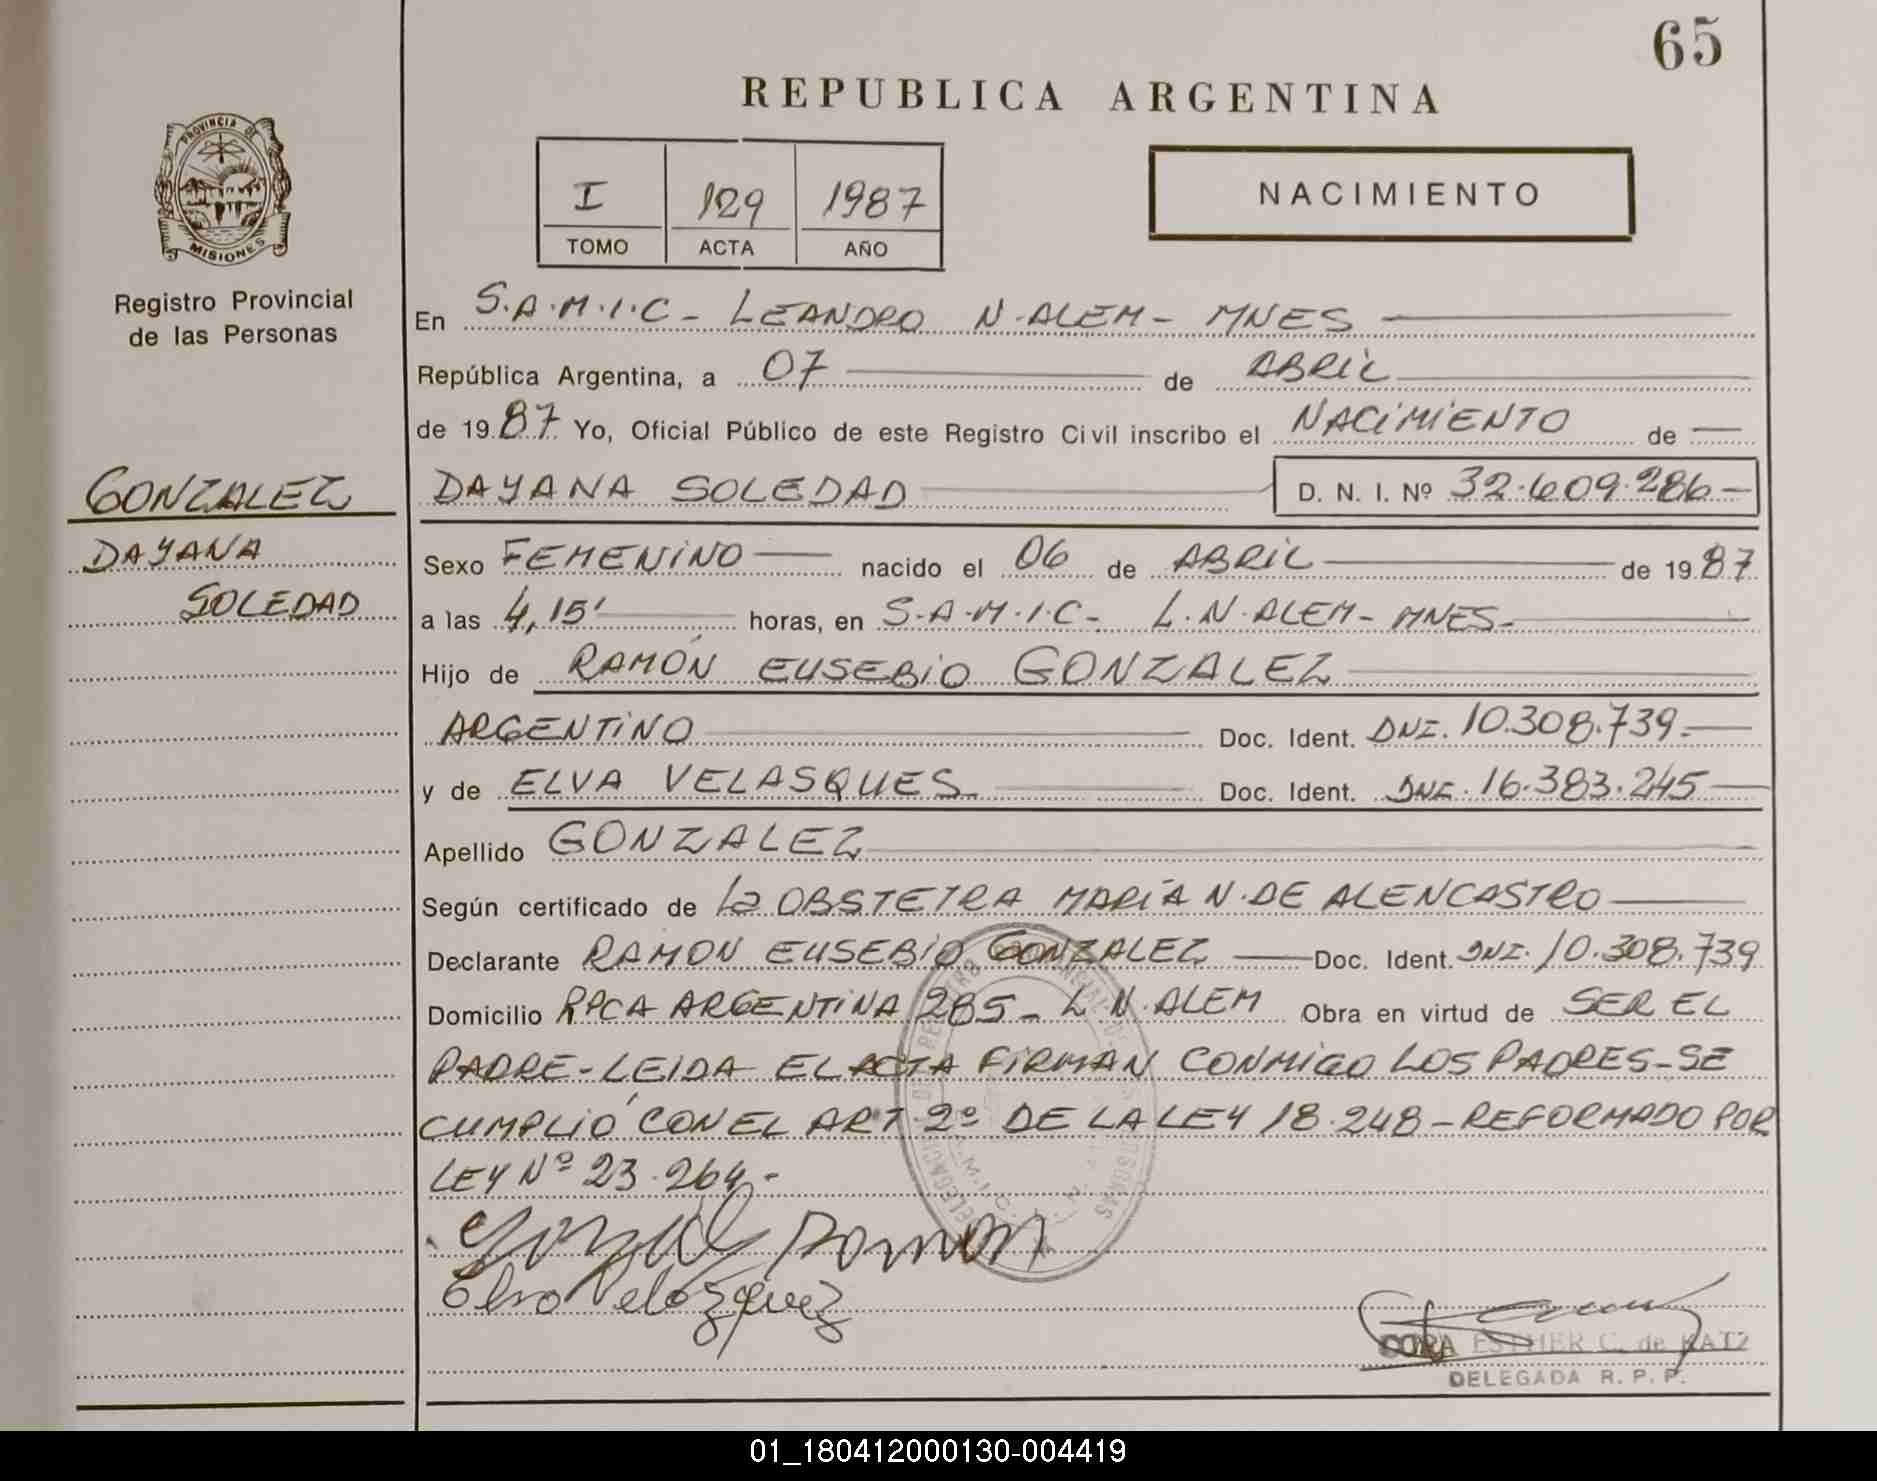 65
REPUBLICA ARGENTINA
PROVINCIA DE
MISIONES
Registro Provincial
de las Personas
I 129 1987
TOMO ACTA AÑO
NACIMIENTO
GONZALEZ
DAYANA
SOLEDAD
En S.A.M.I.C - LEANDRO N. ALEM - MNES
República Argentina, a 07 de ABRIL
de 1987 Yo, Oficial Público de este Registro Civil inscribo el NACIMIENTO de
DAYANA SOLEDAD D. N. I. Nº 32.609.286
Sexo FEMENINO nacido el 06 de ABRIL de 1987
a las 4,15' horas, en S.A.M.I.C - L.N. ALEM - MNES -
Hijo de RAMÓN EUSEBIO GONZALEZ
ARGENTINO Doc. Ident. DNI. 10.308.739.
y de ELVA VELASQUES Doc. Ident. DNI. 16.383.245
Apellido GONZALEZ
Según certificado de La OBSTETRA MARÍA N. DE ALENCASTRO
Declarante RAMON EUSEBIO GONZALEZ Doc. Ident. DNI. 10.308.739
Domicilio RPCA ARGENTINA 285 - L N. ALEM Obra en virtud de SER EL
PADRE - LEIDA EL ACTA FIRMAN CONMIGO LOS PADRES - SE
CUMPLIÓ CON EL ART. 2º DE LA LEY 18.248 - REFORMADO POR
LEY Nº 23.264. -
Gonzalez Ramon
Elva Velázquez
ESTHER C. de KATZ
DELEGADA R. P. P.
01_180412000130-004419